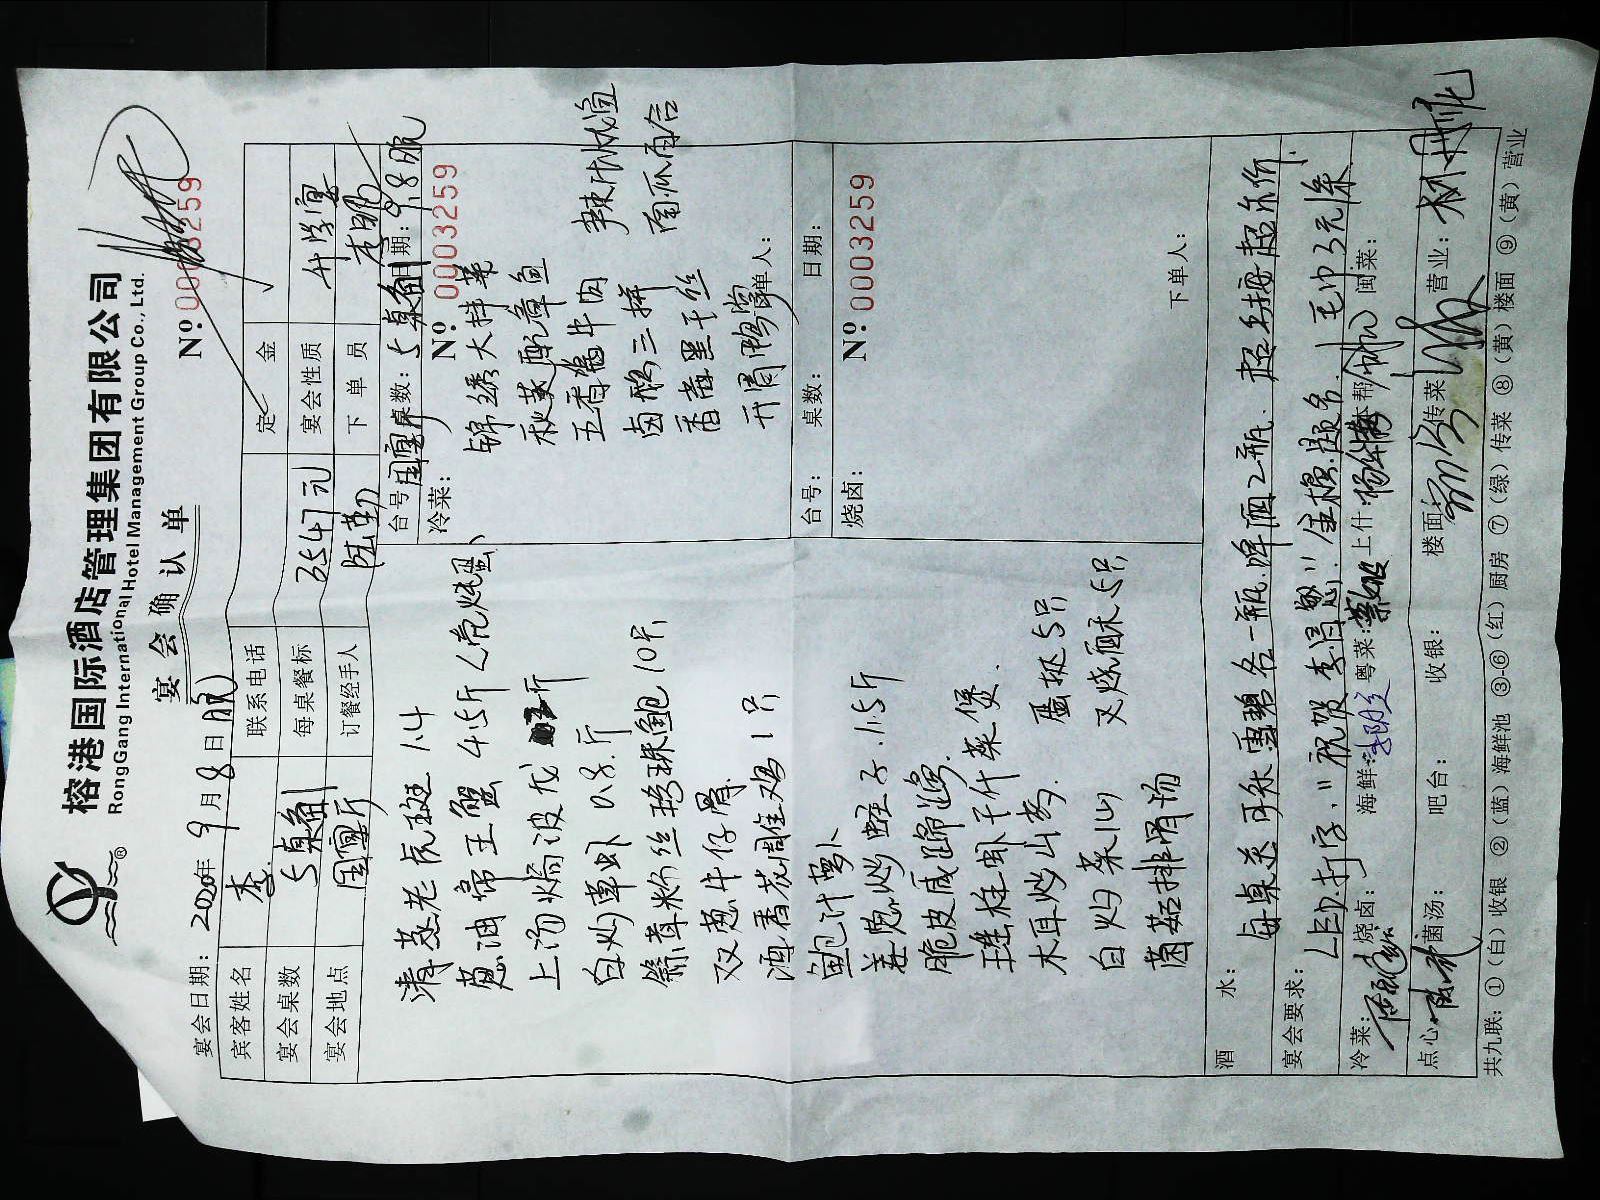 榕港国际酒店管理集团有限公司
RongGang International Hotel Management Group Co., Ltd.
宴会确认单
宴会日期：2020年9月8日晚
Nº 0003259
宾客姓名 李 联系电话 定金
宴会桌数 5桌 每桌餐标 3547元 宴会性质 升学宴
宴会地点 国宴厅 订餐经手人 陈 下单员 李
清蒸老虎斑 1.4
葱油帝王蟹 4.5斤
上汤焗波龙 斤
白灼草虾 0.8斤
粉丝珍珠鲍 10只
双葱牛仔骨
酒香花雕鸡 1只
鲍汁萝卜
姜葱炒蛏子 1.5斤
脆皮咸蹄
瑶柱虾干什菜煲
木耳炒山药 蛋挞5只
白灼菜心 叉烧酥5只
菌菇排骨汤
台号：国宴厅 桌数：5桌 日期：9.8晚
冷菜： Nº 0003259
锦绣大拌菜
秋葵配章鱼
五香酱牛肉 辣
卤鸭三拼 南瓜百合
香 黑干丝
开胃鸭掌
下单人：
台号： 桌数： 日期：
烧卤： Nº 0003259
下单人：
酒水： 每桌送可乐雪碧各一瓶.啤酒2瓶.
宴会要求： LED打字."祝贺李 "金榜题名.毛巾3元/条
冷菜： 烧卤： 海鲜： 粤菜： 上什： 本帮： 闽菜：
点心： 菌汤： 吧台： 收银： 楼面： 传菜： 营业：
共九联：①（白）收银 ②（蓝）海鲜池 ③-⑥（红）厨房 ⑦（绿）传菜 ⑧（黄）楼面 ⑨（黄）营业